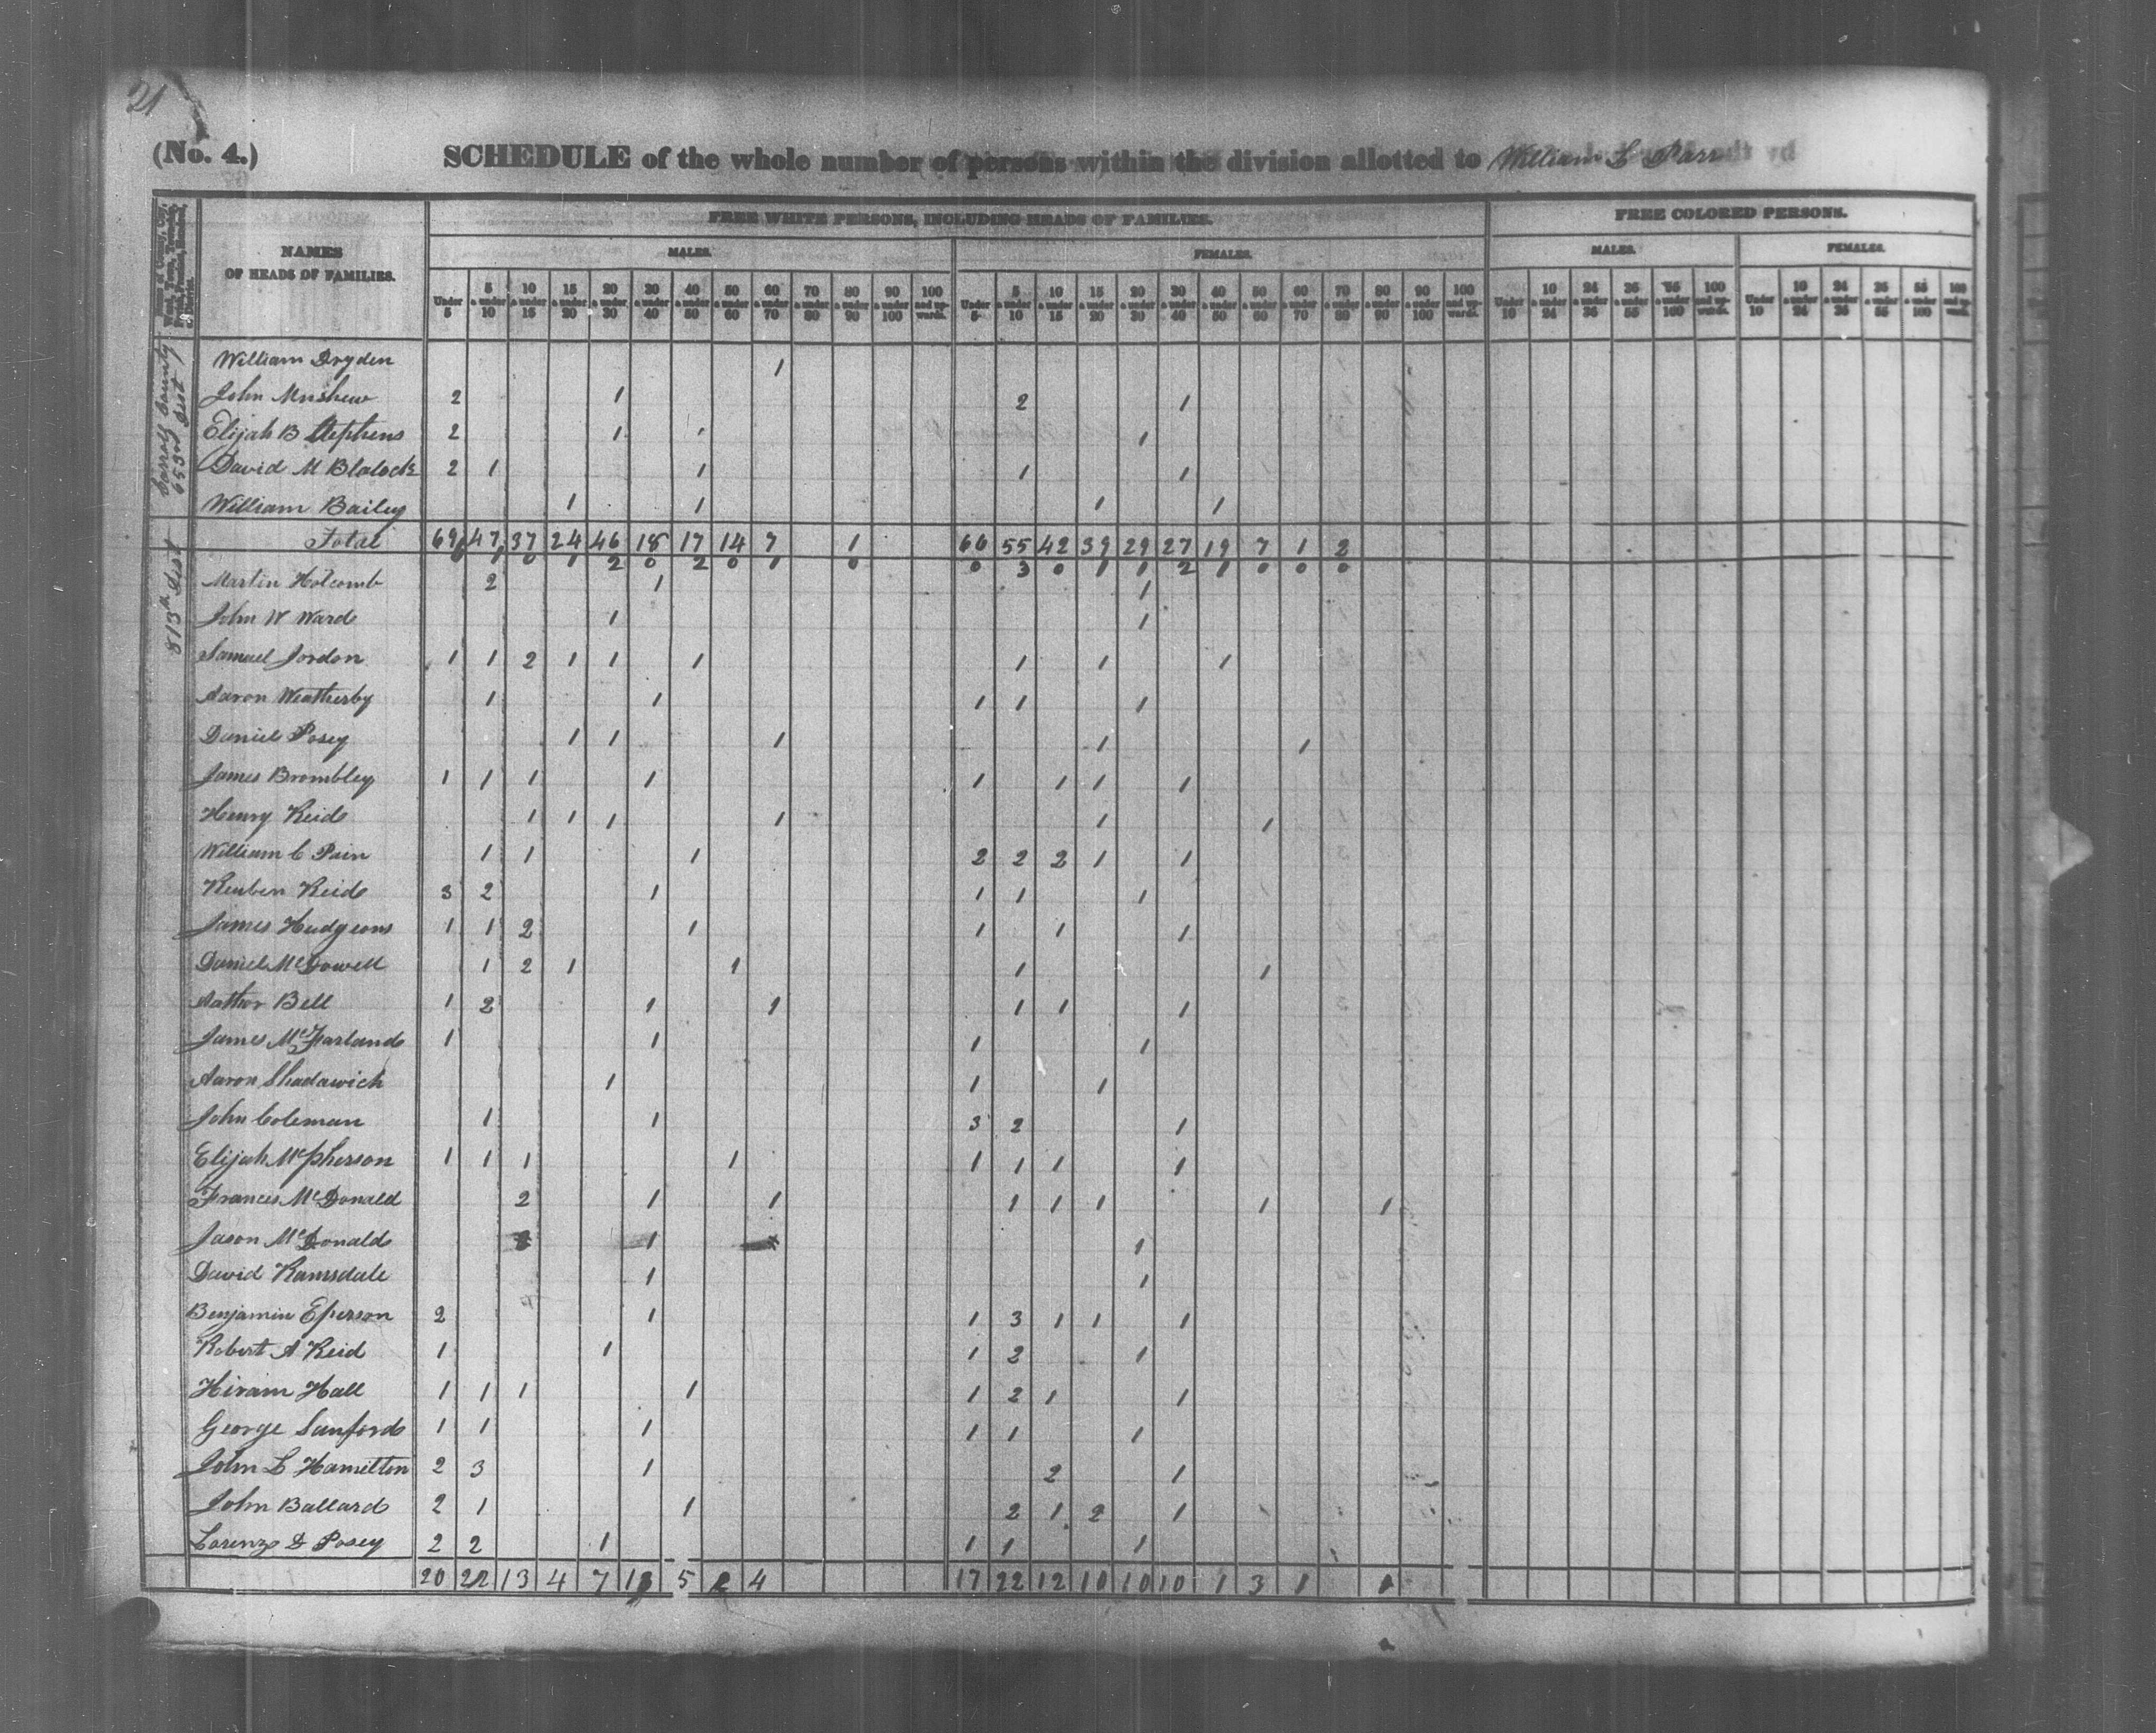 21
(No. 4.) SCHEDULE of the whole number of persons within the division allotted to William L Parr
FREE WHITE PERSONS, INCLUDING HEADS OF FAMILIES. FREE COLORED PERSONS.
NAMES OF HEADS OF FAMILIES. MALES. FEMALES. MALES. FEMALES.
Under 5 | 5 & under 10 | 10 & under 15 | 15 & under 20 | 20 & under 30 | 30 & under 40 | 40 & under 50 | 50 & under 60 | 60 & under 70 | 70 & under 80 | 80 & under 90 | 90 & under 100 | 100 and upwards. | Under 5 | 5 & under 10 | 10 & under 15 | 15 & under 20 | 20 & under 30 | 30 & under 40 | 40 & under 50 | 50 & under 60 | 60 & under 70 | 70 & under 80 | 80 & under 90 | 90 & under 100 | 100 and upwards. | Under 10 | 10 & under 24 | 24 & under 36 | 36 & under 55 | 55 & under 100 | 100 and upwards. | Under 10 | 10 & under 24 | 24 & under 36 | 36 & under 55 | 55 & under 100 | 100 and upwards.
Carroll County
653rd Dist
William Dryden 1
John Mushew 2 1 2 1
Elijah B Stephens 2 1 1
David M Blalock 2 1 1 1 1
William Bailey 1 1 1 1
Total 69 47 37 24 46 18 17 14 7 1 66 55 42 39 29 27 19 7 1 2
6 1 0 1 2 0 2 0 1 0 0 3 0 1 1 2 1 0 0 0
813th Dist
Martin Holcomb 2 1 1
John W Ward 1 1
Samuel Jordon 1 1 2 1 1 1 1 1 1
Aaron Weatherby 1 1 1 1 1
Daniel Posey 1 1 1 1 1
James Brombley 1 1 1 1 1 1 1 1
Henry Reid 1 1 1 1 1 1
William C Pain 1 1 1 2 2 2 1 1
Reuben Reid 3 2 1 1 1 1
James Hudgeons 1 1 2 1 1 1 1
Daniel McDowell 1 2 1 1 1 1
Aathor Bell 1 2 1 1 1 1 1
James McFarland 1 1 1 1
Aaron Shadawick 1 1 1
John Coleman 1 1 3 2 1
Elijah McPherson 1 1 1 1 1 1 1 1
Frances McDonald 2 1 1 1 1 1 1 1
Jason McDonald 1 1
David Ramsdale 1 1
Benjamin Eperson 2 1 1 3 1 1 1
Robert A Reid 1 1 1 2 1
Hiram Hall 1 1 1 1 1 2 1 1
George Sanford 1 1 1 1 1 1
John L Hamilton 2 3 1 2 1
John Ballard 2 1 1 2 1 2 1
Lorenzo D Posey 2 2 1 1 1 1
20 22 13 4 7 13 5 2 4 17 22 12 10 10 10 1 3 1 1